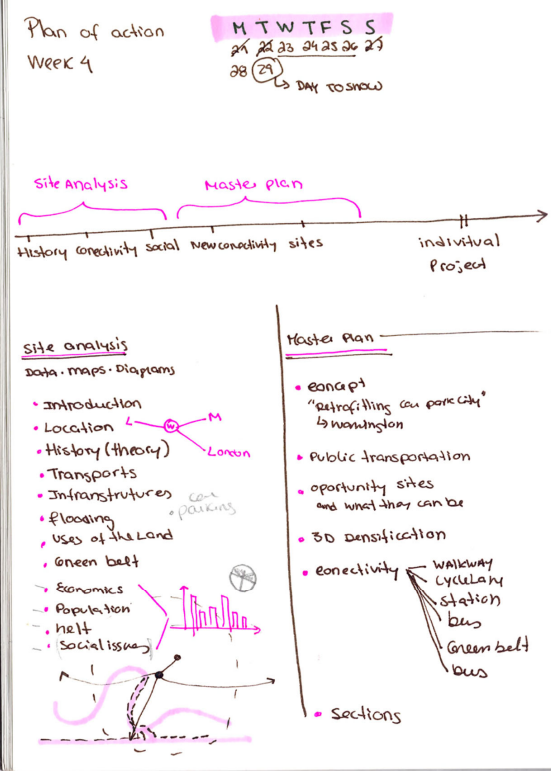 Plan of action
Week 4
M T W T F S S
21 22 23 24 25 26 27
28 29
↳ DAY TO SHOW
Site Analysis
Master plan
History conectivity social New conectivity sites
indivitual
Project
Site analysis
Data · maps · Diagrams
• Introduction
• Location
L
W
M
London
• History (theory)
• Transports
• Infranstrutures
car
• parking
• flooding
• Uses of the Land
• Green belt
• Economics
• Population
• helt
• Social issues
Master Plan
• concept
"Retrofitting car park city"
↳ Warrington
• Public transportation
• oportunity sites
and what they can be
• 3D Densification
• conectivity
WALKWAY
CYCLELANY
station
bus
Green belt
bus
• Sections